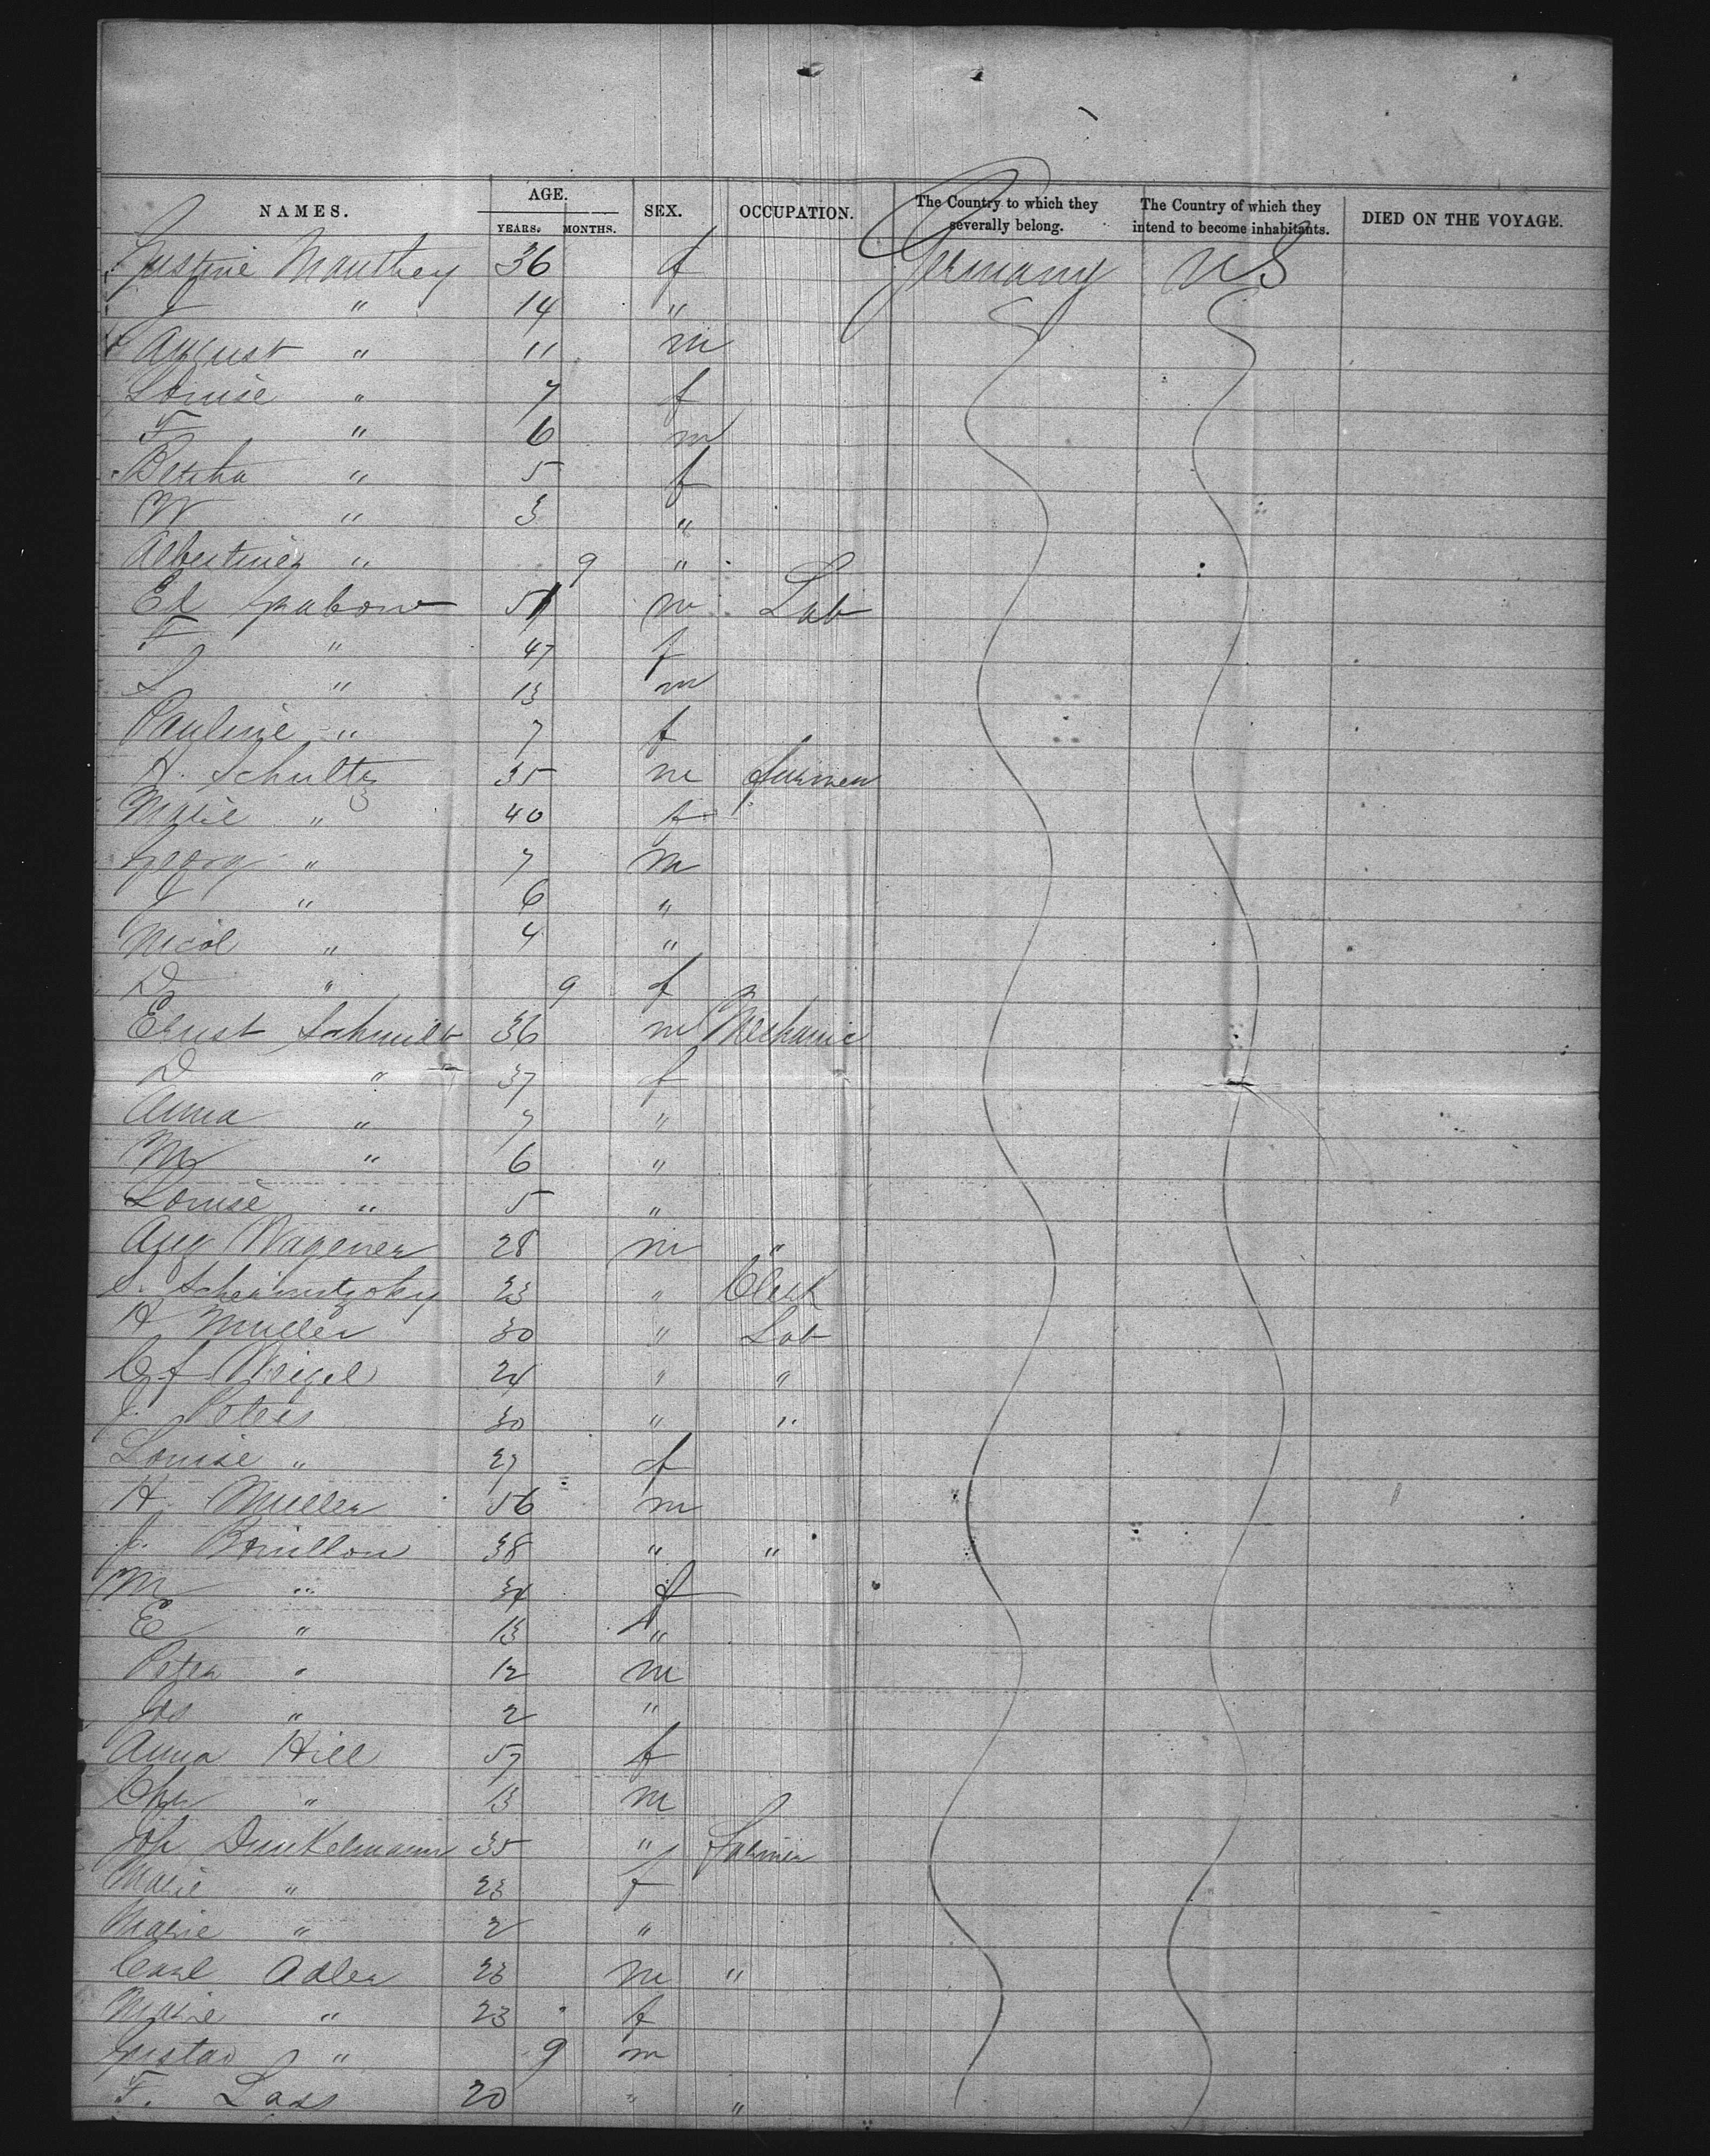 NAMES. AGE. YEARS. MONTHS. SEX. OCCUPATION. The Country to which they severally belong. The Country of which they intend to become inhabitants. DIED ON THE VOYAGE.
Justine Manthey 36 f Germany US
J " 14 "
August " 11 m
Louise " 7 f
F " 6 m
Bertha " 5 f
W " 3 "
Albertine " 9 "
Ed Grabow 51 m Lab
F " 47 f
L " 13 m
Pauline " 7 f
H. Schultz 35 m farmer
Marie " 40 f
Georg " 7 m
J " 6 "
Nicol " 4 "
D " 9 f
Ernst Schmidt 36 m Mechanic
D " 37 f
Anna " 7 "
M " 6 "
Louise " 5 "
Aug Wagener 28 m "
S. 23 " Clerk
H Muller 30 " Lab
C f Weigel 24 " "
J. Peters 30 " "
Louise " 27 f
H. Muller 56 m
J. Bouillon 38 " "
M " 34 f
E " 13 "
Peter " 12 m
Jos " 2 "
Anna Hill 57 f
Chr " 13 m
Joh Dunkelmann 35 " Farmer
Marie " 23 f
Marie " 2 "
Carl Adler 23 m "
Marie " 23 f
Gustav " 9 m
F. Lass 20 " "